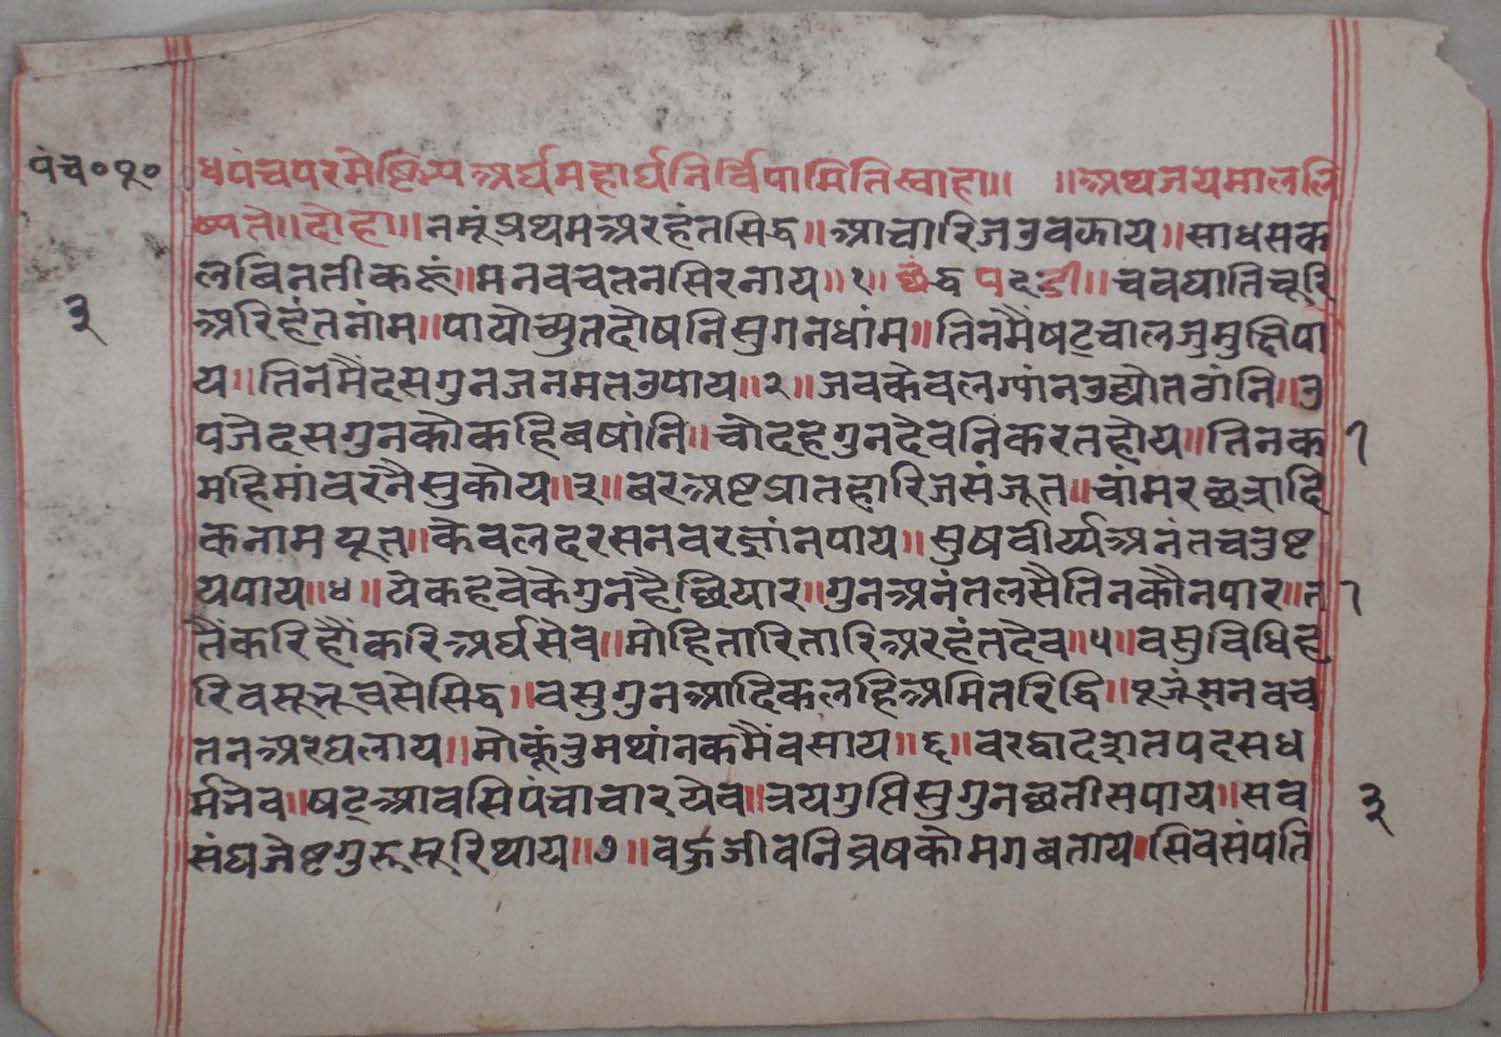 पंच० पू०
धपंचपरमेष्टिभ्य अर्घमहार्घनिर्विपामितिस्वाहा॥ ॥अथजयमाललि
ष्यते॥दोहा॥नमूंप्रथमअरहंतसिद्ध॥आचारिजउवझाय॥साधसक
लबिनतीकरूं॥मनवचतनसिरनाय॥१॥छंद पद्धडी॥चवघातिचूरि
अरिहंतनांम॥पायोच्युतदोषनिसुगनधांम॥तिनमैंषट्चालजुमुक्षिपा
य॥तिनमैंदसगुनजनमतउपाय॥२॥जवकेवलग्यांनउद्योतवांनि॥उ
पजेदसगुनकोकहिबषांनि॥चोदहगुनदेवनिकरतहोय॥तिनक
महिमांवरनैसुकोय॥३॥बरअष्टप्रातहारिजसंजूत॥चांमरछत्रादि
कनामयूत॥केवलदरसनवरज्ञांनपाय॥सुषवीर्य्यअनंतचतुष्ट
यपाय॥४॥येकहवेकेगुनहैछियार॥गुनअनंतलसैतिनकौनपार॥त
तैंकरिहौंकरिअर्घसेव॥मोहितारितारिअरहंतदेव॥५॥वसुविधिह
रिवसूभूवसेसिद्ध॥वसुगुनआदिकलहिअमितरिद्धि॥पूजूंमनवच
तनअरघलाय॥मोकूंतुमथांनकमैंवसाय॥६॥वरद्वादशतपदसध
र्मनेव॥षट्आवसिपंचाचार्येव॥त्रयगुप्तिसुगुनछतीसपाय॥सव
संघजेष्टगुरूसूरिथाय॥७॥वहुजीवनिव्रषकोमगबताय॥सिवसंपति
३
१
१
३